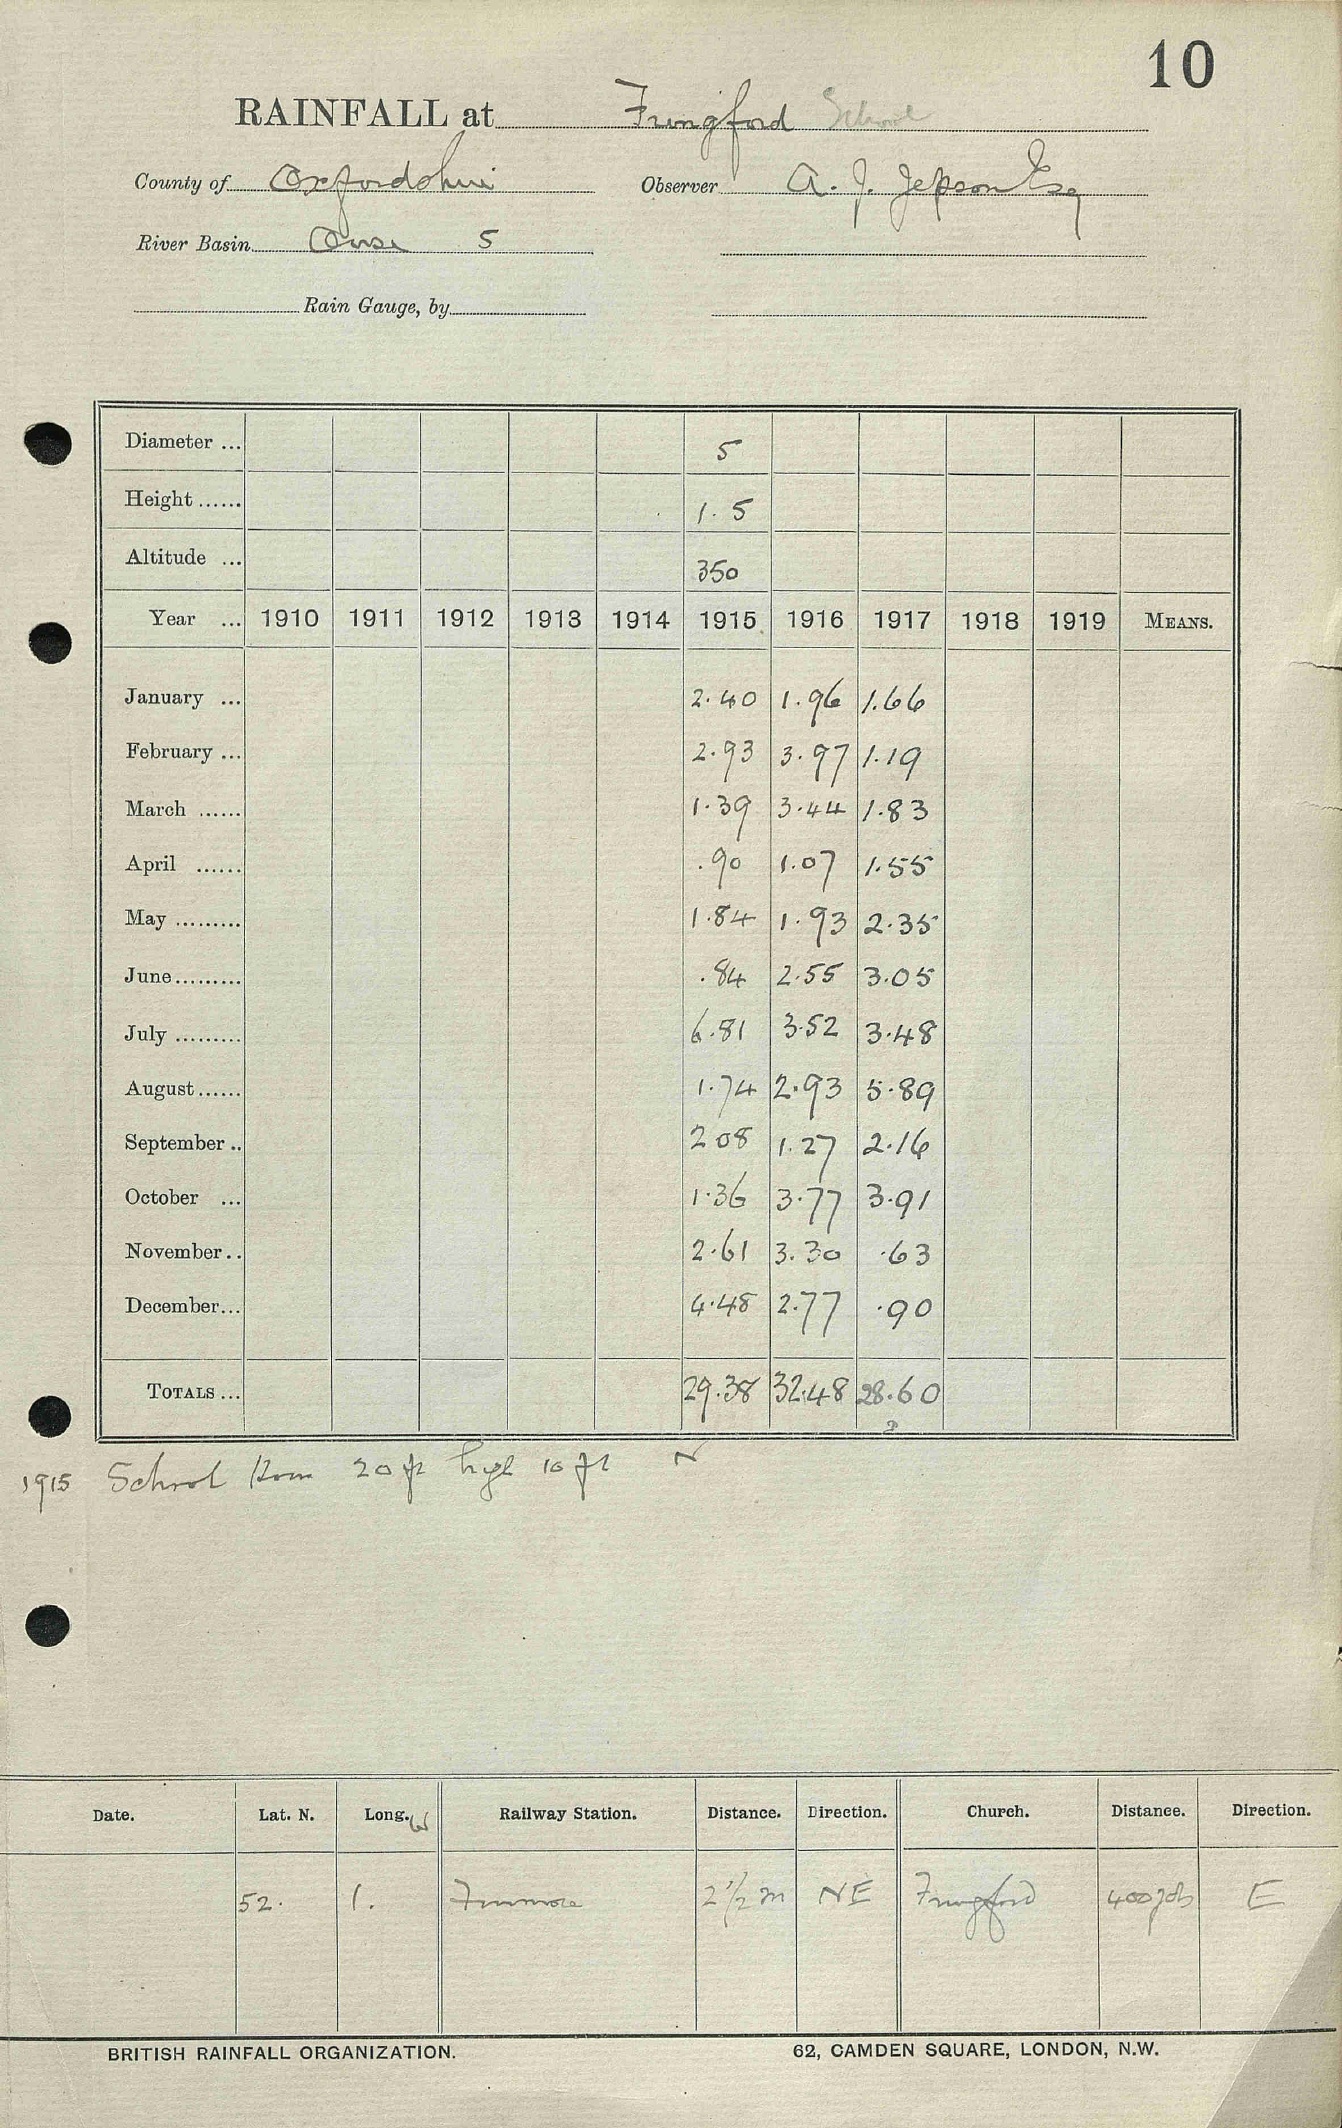 10
RAINFALL at Fringford School
County of Oxfordshire Observer A. J. Jepson Esq
River Basin Ouse 5
Rain Gauge, by
Diameter ... 5
Height ...... 1.5
Altitude ... 350
Year ... 1910 1911 1912 1913 1914 1915 1916 1917 1918 1919 MEANS.
January ... 2.40 1.96 1.66
February ... 2.93 3.97 1.19
March ...... 1.39 3.44 1.83
April ...... .90 1.07 1.55
May ......... 1.84 1.93 2.35
June ......... .84 2.55 3.05
July ......... 6.81 3.52 3.48
August ...... 1.74 2.93 5.89
September .. 2 08 1.27 2.16
October ... 1.36 3.77 3.91
November .. 2.61 3.30 .63
December ... 4.48 2.77 .90
TOTALS ... 29.38 32.48 28.60
?
1915 School 20 ft high 10 ft N
Date. Lat. N. Long. W Railway Station. Distance. Direction. Church. Distance. Direction.
52. 1. Finmere 2 1/2 m NE Fringford 400 yds E
BRITISH RAINFALL ORGANIZATION. 62, CAMDEN SQUARE, LONDON, N.W.